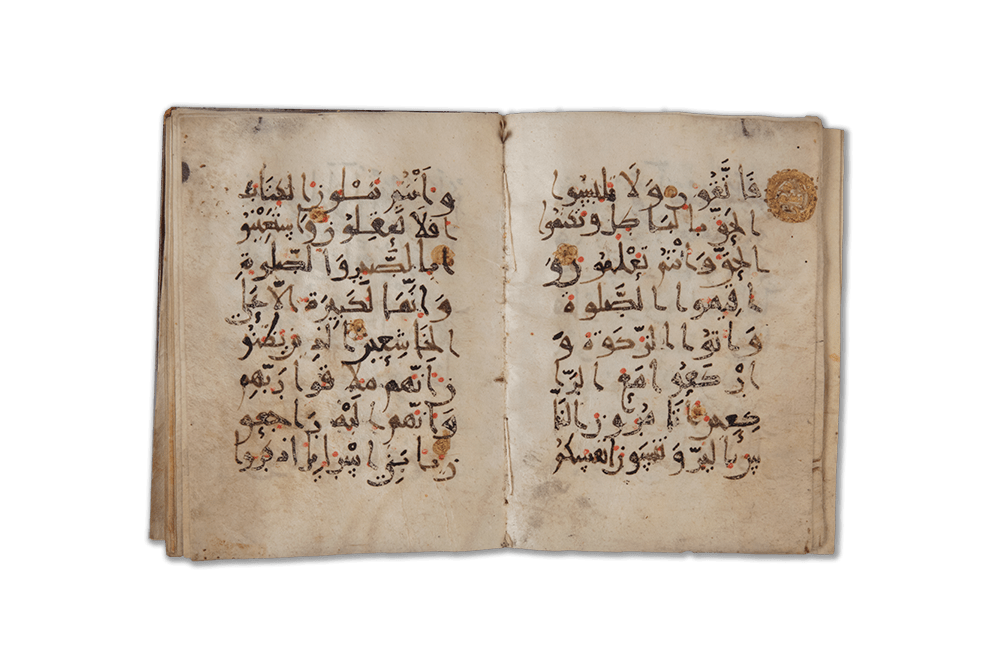 فَاتَّقُونِ وَلَا تَلْبِسُوا
الحَقَّ بِالبَاطِلِ وَتَكْتُمُوا
الحَقَّ وَأَنْتُمْ تَعْلَمُونَ وَ
اقِيمُوا الصَّلَوةَ
وَاتُوا الزَّكَوةَ وَ
ارْكَعُوا مَعَ الرَّا
كِعِينَ اتَامُرُونَ النَّا
سَ بِالبِرِّ وَتَنْسَوْنَ انْفُسَكُمْ
وَانْتُمْ تَتْلُونَ الكِتَابَ
افَلَا تَعْقِلُونَ وَاسْتَعِينُو
ا بِالصَّبْرِ وَالصَّلَوةِ
وَانَّهَا لَكَبِيرَةٌ الَّا عَلَى
الخَاشِعِينَ الَّذِينَ يَظُنُّو
نَ انَّهُم مُلَاقُوا رَبِّهِمْ
وَانَّهُمُ الَيْهِ رَاجِعُو
نَ يَا بَنِي اسْرَايِلَ اذْكُرُوا